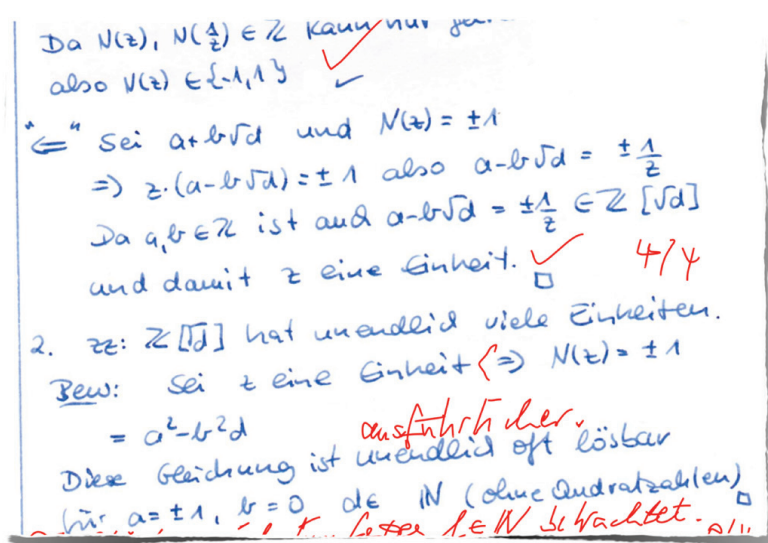 Da N(z), N(1/z) ∈ ℤ kann nur
also N(z) ∈ {-1,1}
"⇐" Sei a+b√d und N(z) = ±1
⇒ z·(a-b√d) = ±1 also a-b√d = ±1/z
Da a,b ∈ ℤ ist auch a-b√d = ±1/z ∈ ℤ[√d]
und damit z eine Einheit. □ 4/4
2. zz: ℤ[√d] hat unendlich viele Einheiten.
Bew: Sei z eine Einheit ⇔ N(z) = ±1
= a²-b²d ausführlicher.
Diese Gleichung ist unendlich oft lösbar
für a=±1, b=0 d∈ ℕ (ohne Qudratzahlen) □
∈ ℕ betrachtet.